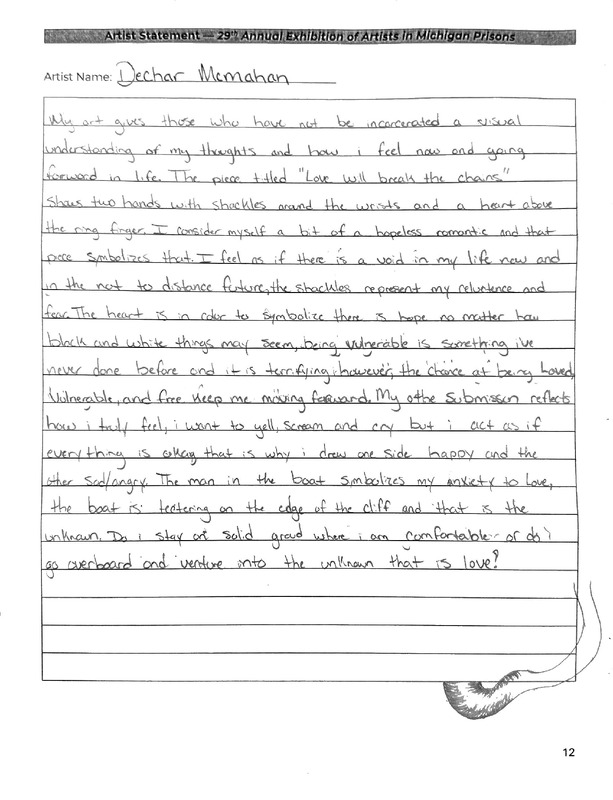 Artist Statement — 29th Annual Exhibition of Artists in Michigan Prisons
Artist Name: Dechar Mcmahan
My art gives those who have not be incarcerated a visual
understanding of my thoughts and how i feel now and going
foreword in life. The piece titled "Love will break the chains"
Shows two hands with shackles around the wrists and a heart above
the ring finger. I consider myself a bit of a hopeless romantic and that
piece symbolizes that. I feel as if there is a void in my life now and
in the not to distance future, the shackles represent my reluctence and
fear. The heart is in color to symbolize there is hope no matter how
black and white things may seem, being vulnerable is something i've
never done before and it is terrifying however, the chance at being loved,
Vulnerable, and free keep me moving forward. My othe submisson reflects
how i truly feel, i want to yell, scream and cry but i act as if
everything is okay that is why i drew one side happy and the
other sad/angry. The man in the boat symbolizes my anxiety to love,
the boat is teetering on the edge of the cliff and that is the
unknown. Do i stay on solid groud where i am comfortable or do i
go overboard and venture into the unknown that is love?
12